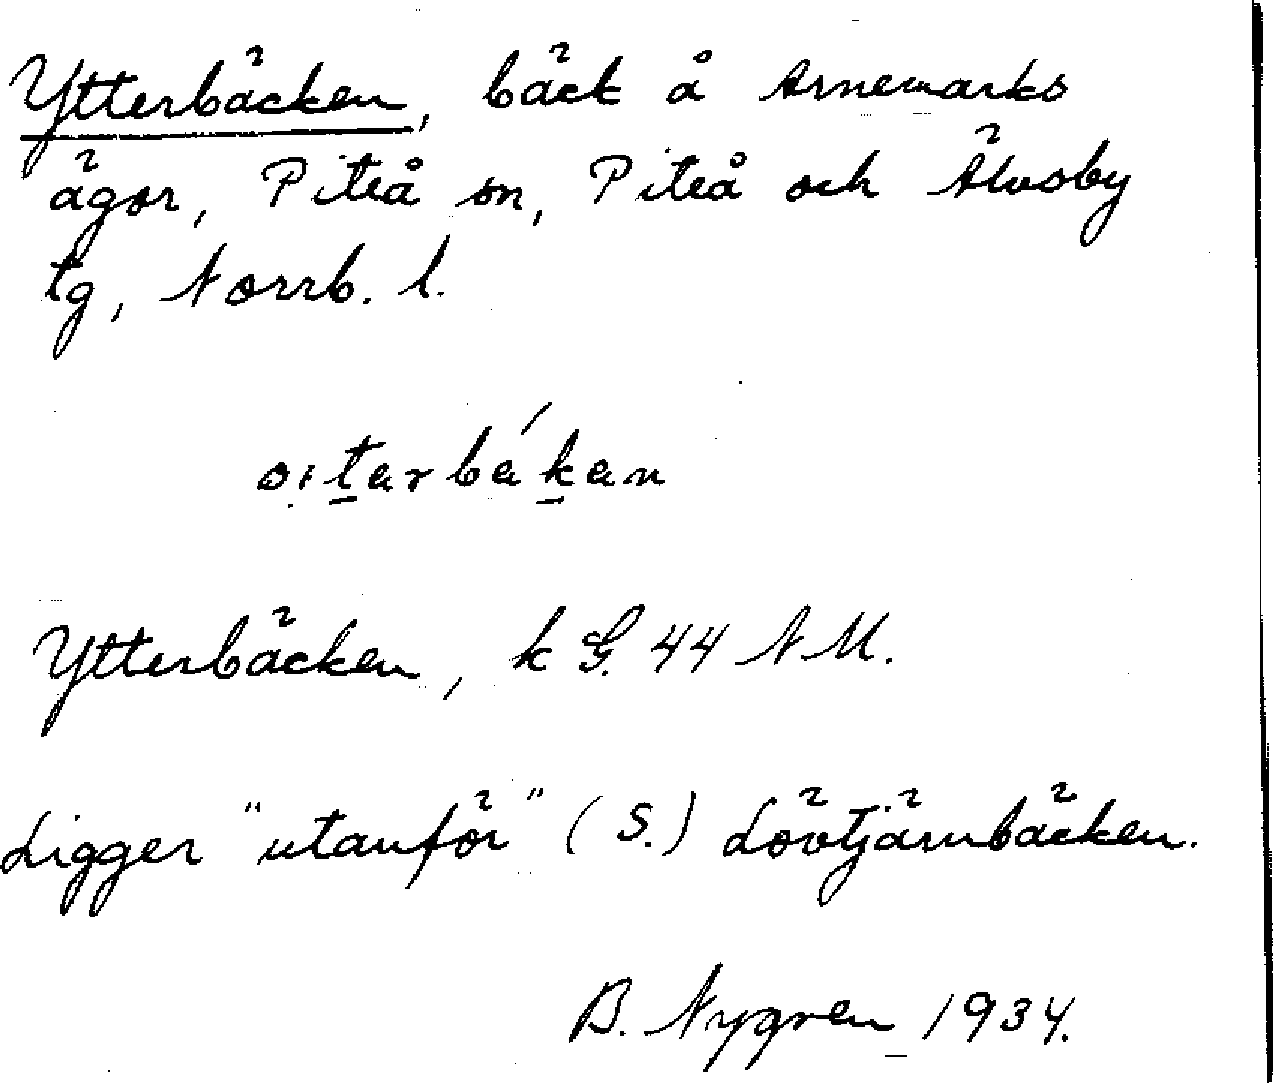 Ytterbäcken, bäck å Arnemarks
ägor, Piteå sn, Piteå och Älvsby
tg, Norrb. l.
Ytterbäcken, k G. 44 N M.
Ligger "utanför" (S.) Lövtjärnbäcken.
B. Nygren 1934.